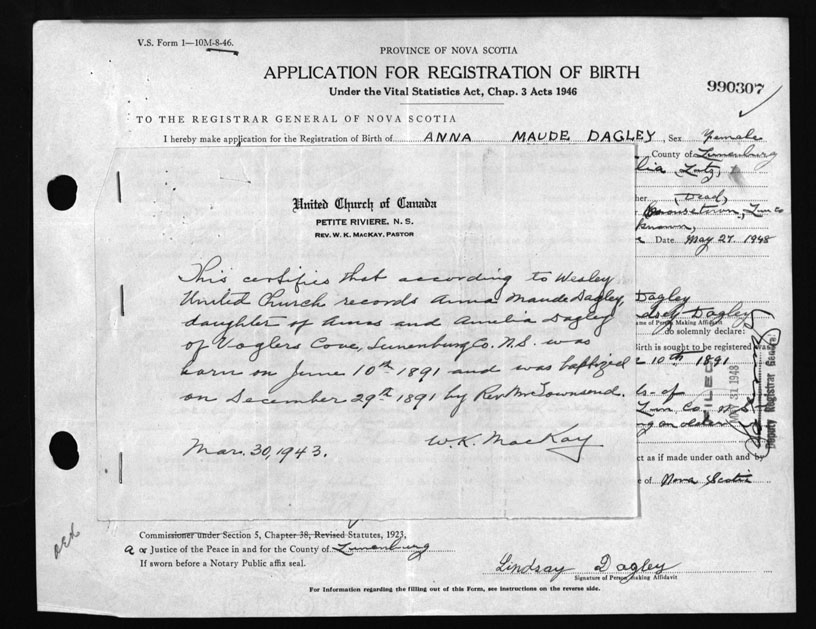 V.S. Form 1—10M-8-46.
PROVINCE OF NOVA SCOTIA
APPLICATION FOR REGISTRATION OF BIRTH
Under the Vital Statistics Act, Chap. 3 Acts 1946
990307
TO THE REGISTRAR GENERAL OF NOVA SCOTIA
I hereby make application for the Registration of Birth of ANNA MAUDE DAGLEY, Sex Female
County of Lunenburg
lia (Lutz)
United Church of Canada
PETITE RIVIERE, N. S.
REV. W. K. MACKAY, PASTOR
her (Dead)
Date May 27. 1948
This certifies that according to Wesley
United Church records Anna Maude Dagley,
daughter of Amos and Amelia Dagley
of Voglers Cove, Lunenburg Co. N.S. was
born on June 10th 1891 and was baptized
on December 29th 1891 by Rev. Mr Townsend.
Mar. 30, 1943. W. K. MacKay
Dagley
dsey Dagley
ame of Person Making Affidavit
do solemnly declare:
Birth is sought to be registered was
10th 1891
ds of
Lun. Co. N.S.
ng an older
FILED
31 1948
Deputy Registrar General
ct as if made under oath and by
of Nova Scotia
Commissioner under Section 5, Chapter 38, Revised Statutes, 1923,
a or Justice of the Peace in and for the County of Lunenburg
If sworn before a Notary Public affix seal.
Lindsay Dagley
Signature of Person making Affidavit
For Information regarding the filling out of this Form, see instructions on the reverse side.